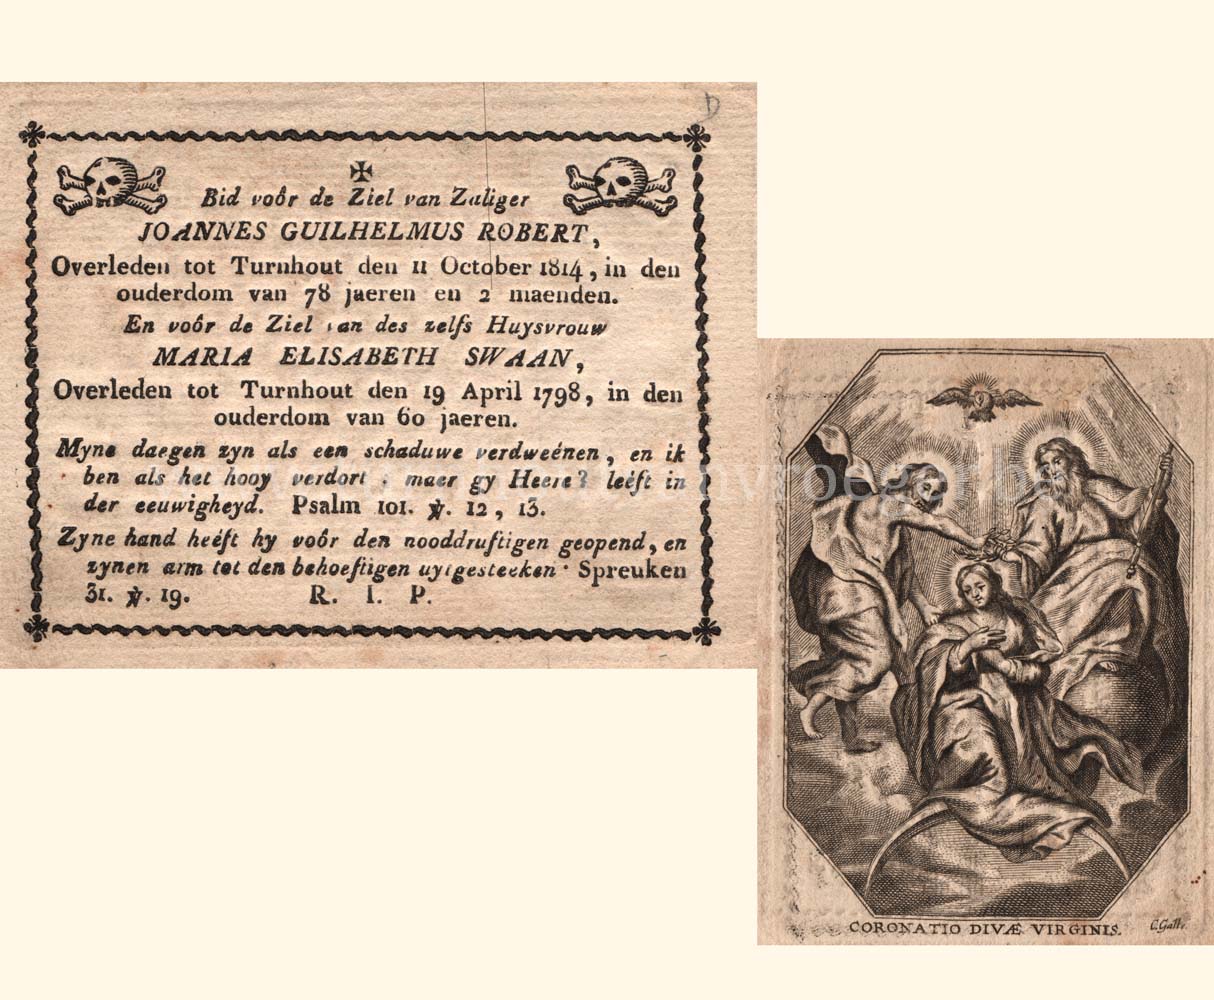 D
✠
Bid voôr de Ziel van Zaliger
JOANNES GUILHELMUS ROBERT,
Overleden tot Turnhout den 11 October 1814, in den
ouderdom van 78 jaeren en 2 maenden.
En voôr de Ziel van des zelfs Huysvrouw
MARIA ELISABETH SWAAN,
Overleden tot Turnhout den 19 April 1798, in den
ouderdom van 60 jaeren.
Myne daegen zyn als een schaduwe verdweénen, en ik
ben als het hooy verdort, maer gy Heere! leéft in
der eeuwigheyd. Psalm 101. ℣. 12, 13.
Zyne hand heéft hy voôr den nooddruftigen geopend, en
zynen arm tot den behoeftigen uytgesteeken. Spreuken
31. ℣. 19. R. I. P.
CORONATIO DIVÆ VIRGINIS.
C. Galle.